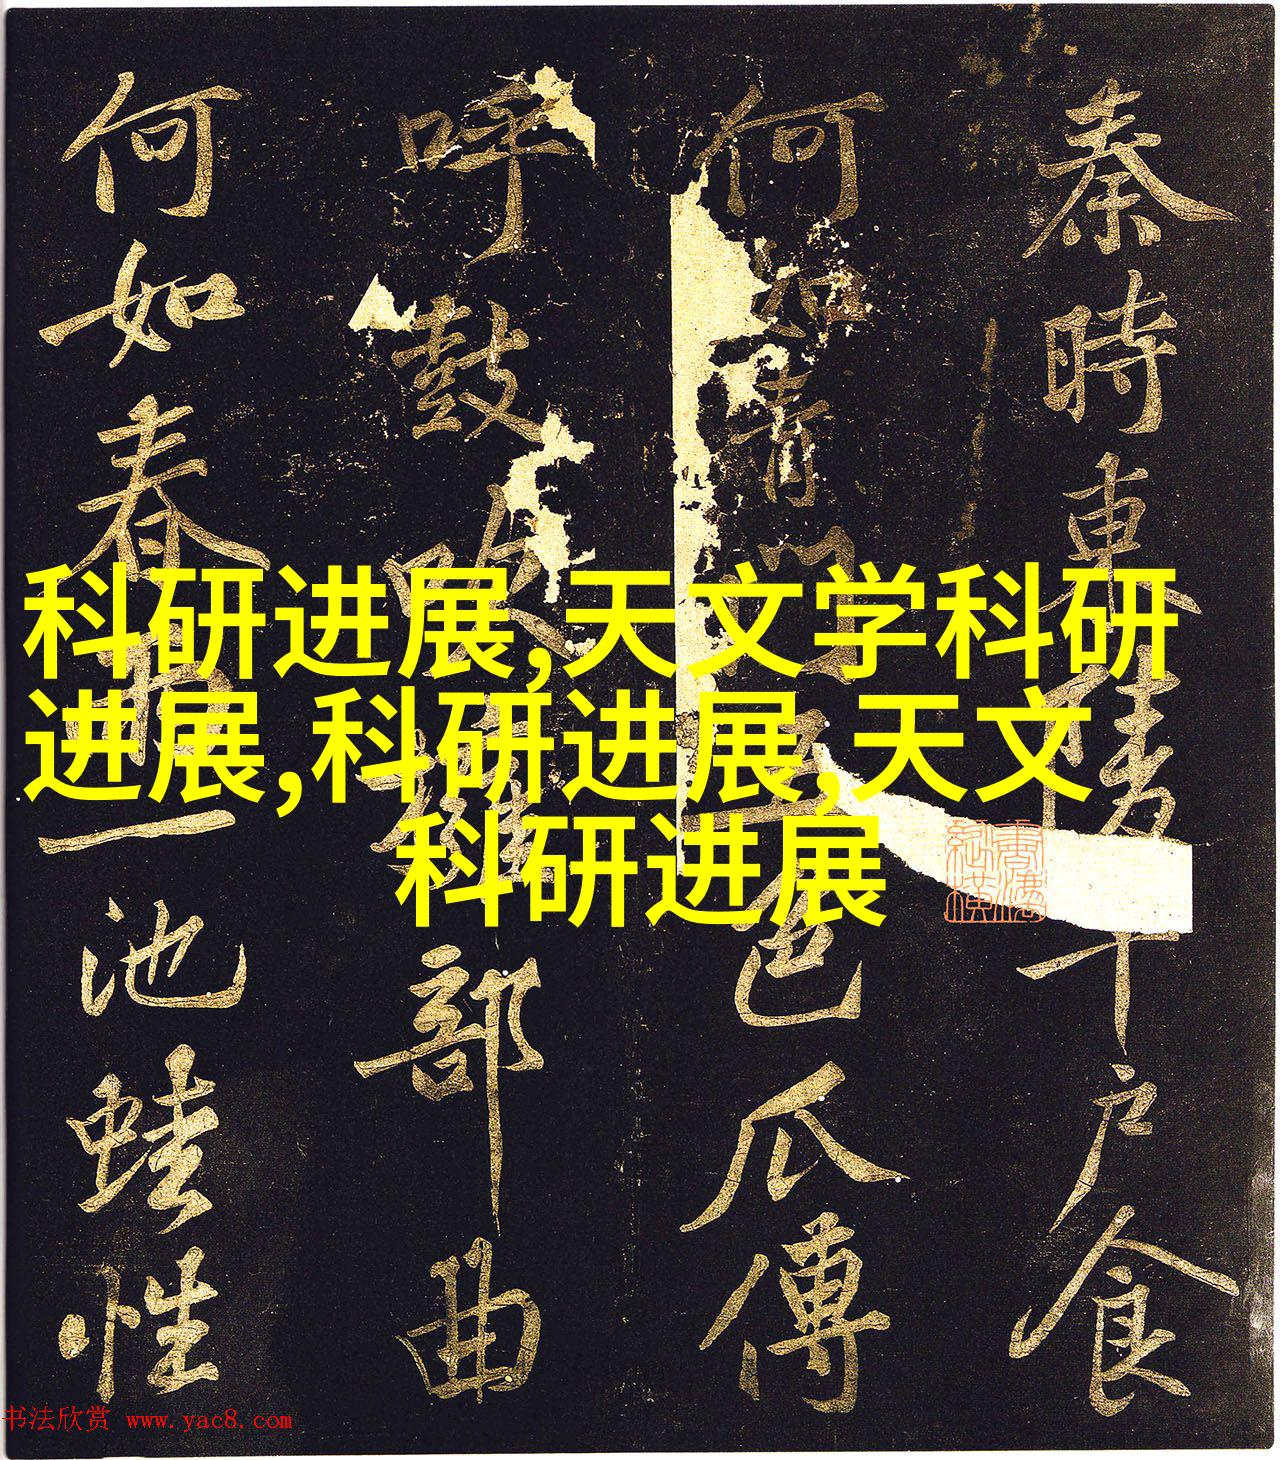 秦時東陵千戶食
何如青門五色瓜傳
呼鼓吹雜部曲
何如春雨一池蛙性
科研进展,天文学科研
进展,科研进展,天文
科研进展
书法欣赏 www.yac8.com